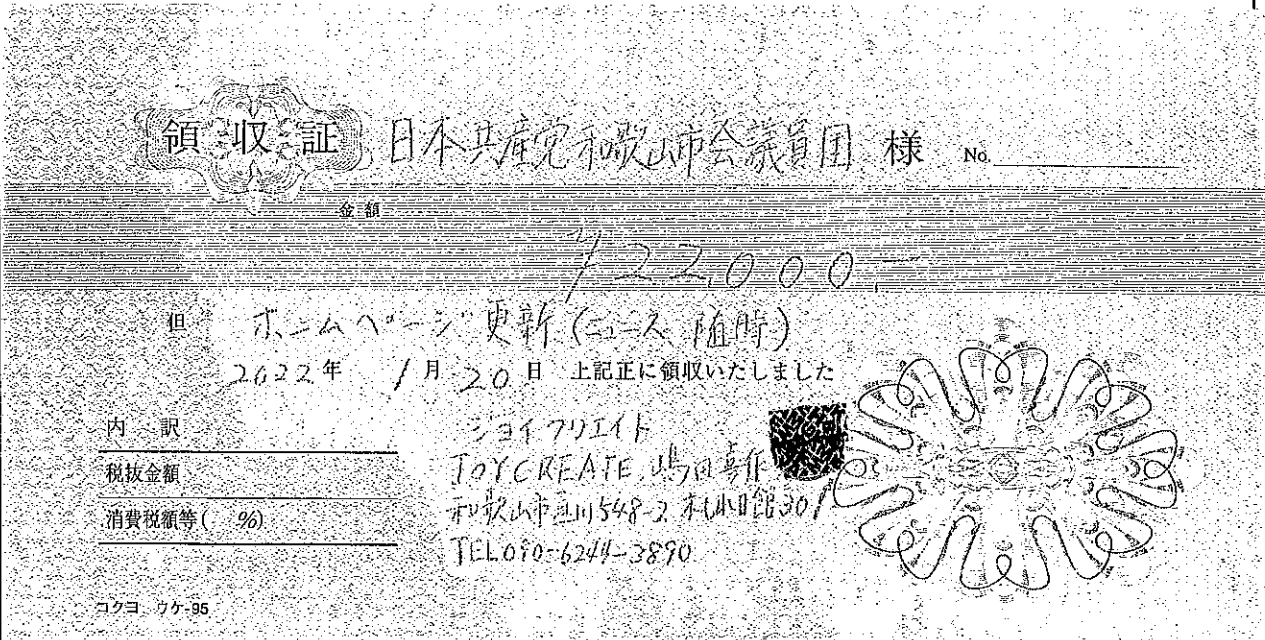 領収証 日本共産党和歌山市会議員団 様 No.
金額
¥22,000.-
但 ホームページ更新(ニュース随時)
2022年 1月20日 上記正に領収いたしました
内訳
税抜金額
消費税額等( %)
ジョイクリエイト
JOYCREATE 嶋田
和歌山市 548-2 301
TEL090-6244-3890
コクヨ ウケ-95